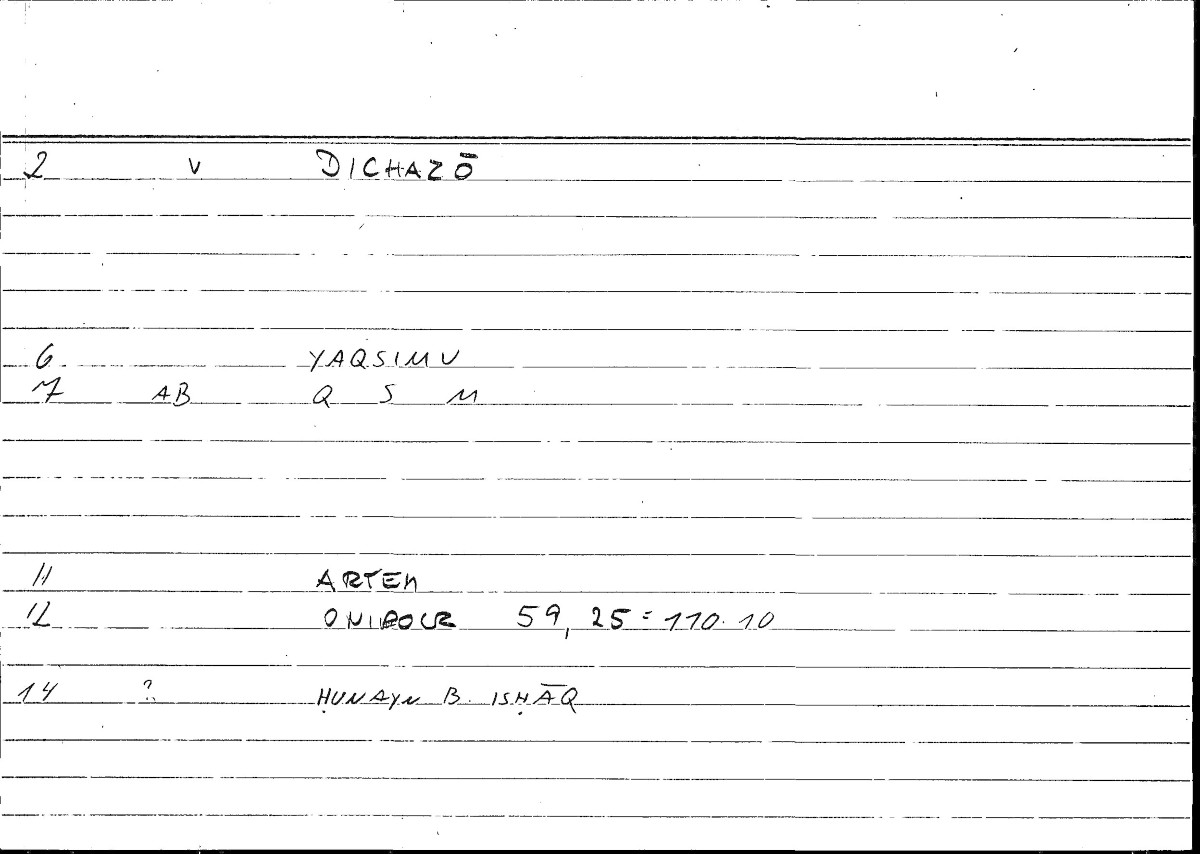 2 V DICHAZŌ
6 YAQSIMU
7 AB Q S M
11 ARTEM
12 ONIROCR 59, 25 = 110.10
14 ? ḤUNAYN B. ISḤĀQ